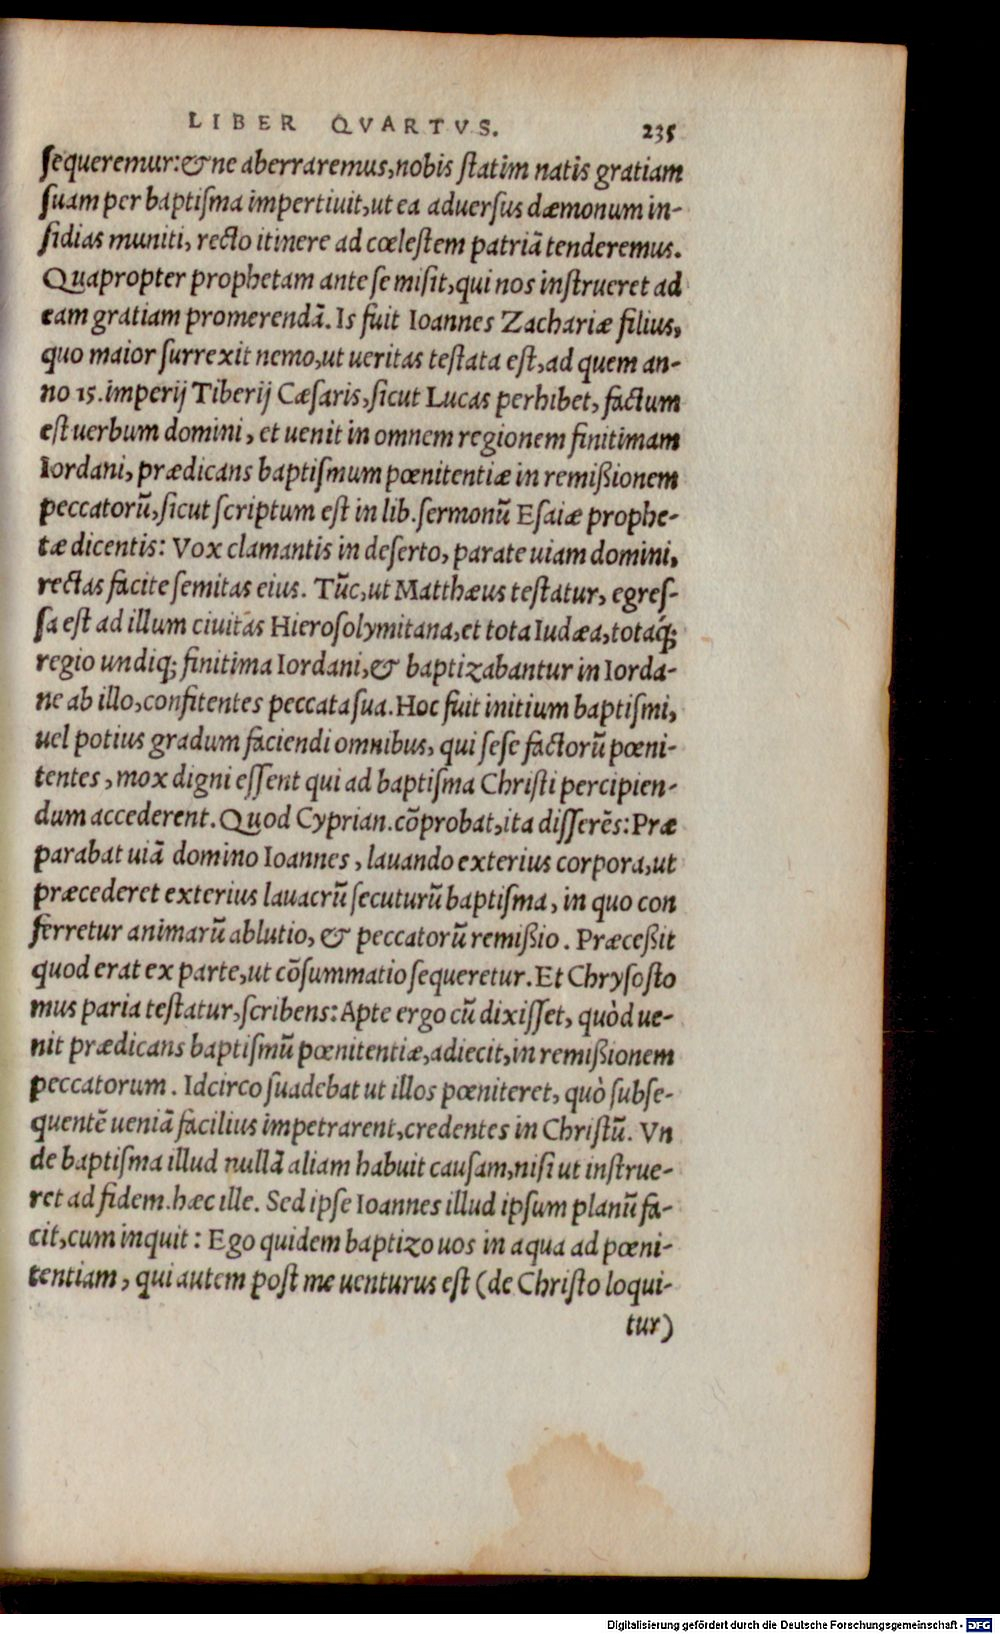 LIBER QVARTVS. 235
sequeremur: & ne aberraremus, nobis statim natis gratiam
suam per baptisma impertiuit, ut ea aduersus dæmonum in-
sidias muniti, recto itinere ad cœlestem patriã tenderemus.
Quapropter prophetam ante se misit, qui nos instrueret ad
eam gratiam promerendã. Is fuit Ioannes Zachariæ filius,
quo maior surrexit nemo, ut ueritas testata est, ad quem an-
no 15. imperij Tiberij Cæsaris, sicut Lucas perhibet, factum
est uerbum domini, et uenit in omnem regionem finitimam
Iordani, prædicans baptismum pœnitentiæ in remißionem
peccatorũ, sicut scriptum est in lib. sermonũ Esaiæ prophe-
tæ dicentis: Vox clamantis in deserto, parate uiam domini,
rectas facite semitas eius. Tũc, ut Matthæus testatur, egres-
sa est ad illum ciuitas Hierosolymitana, et tota Iudæa, totáq;
regio undiq; finitima Iordani, & baptizabantur in Iorda-
ne ab illo, confitentes peccata sua. Hoc fuit initium baptismi,
uel potius gradum faciendi omnibus, qui sese factorũ pœni-
tentes, mox digni essent qui ad baptisma Christi percipien-
dum accederent. Quod Cyprian. cõprobat, ita disserẽs: Præ
parabat uiã domino Ioannes, lauando exterius corpora, ut
præcederet exterius lauacrũ secuturũ baptisma, in quo con
ferretur animarũ ablutio, & peccatorũ remißio. Præceßit
quod erat ex parte, ut cõsummatio sequeretur. Et Chrysosto
mus paria testatur, scribens: Apte ergo cũ dixisset, quòd ue-
nit prædicans baptismũ pœnitentiæ, adiecit, in remißionem
peccatorum. Idcirco suadebat ut illos pœniteret, quò subse-
quentẽ ueniã facilius impetrarent, credentes in Christũ. Vn
de baptisma illud nullã aliam habuit causam, nisi ut instrue-
ret ad fidem. hæc ille. Sed ipse Ioannes illud ipsum planũ fa-
cit, cum inquit: Ego quidem baptizo uos in aqua ad pœni-
tentiam, qui autem post me uenturus est (de Christo loqui-
tur)
Digitalisierung gefördert durch die Deutsche Forschungsgemeinschaft - DFG